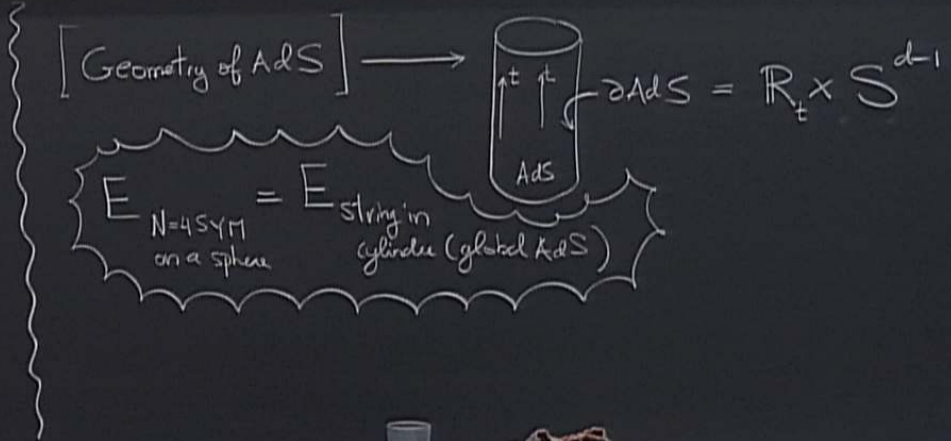 [Geometry of AdS] ⟶
t t
∂AdS = ℝ_t × S^{d-1}
AdS
E_{N=4 SYM on a sphere} = E_{string in cylinder (global AdS)}